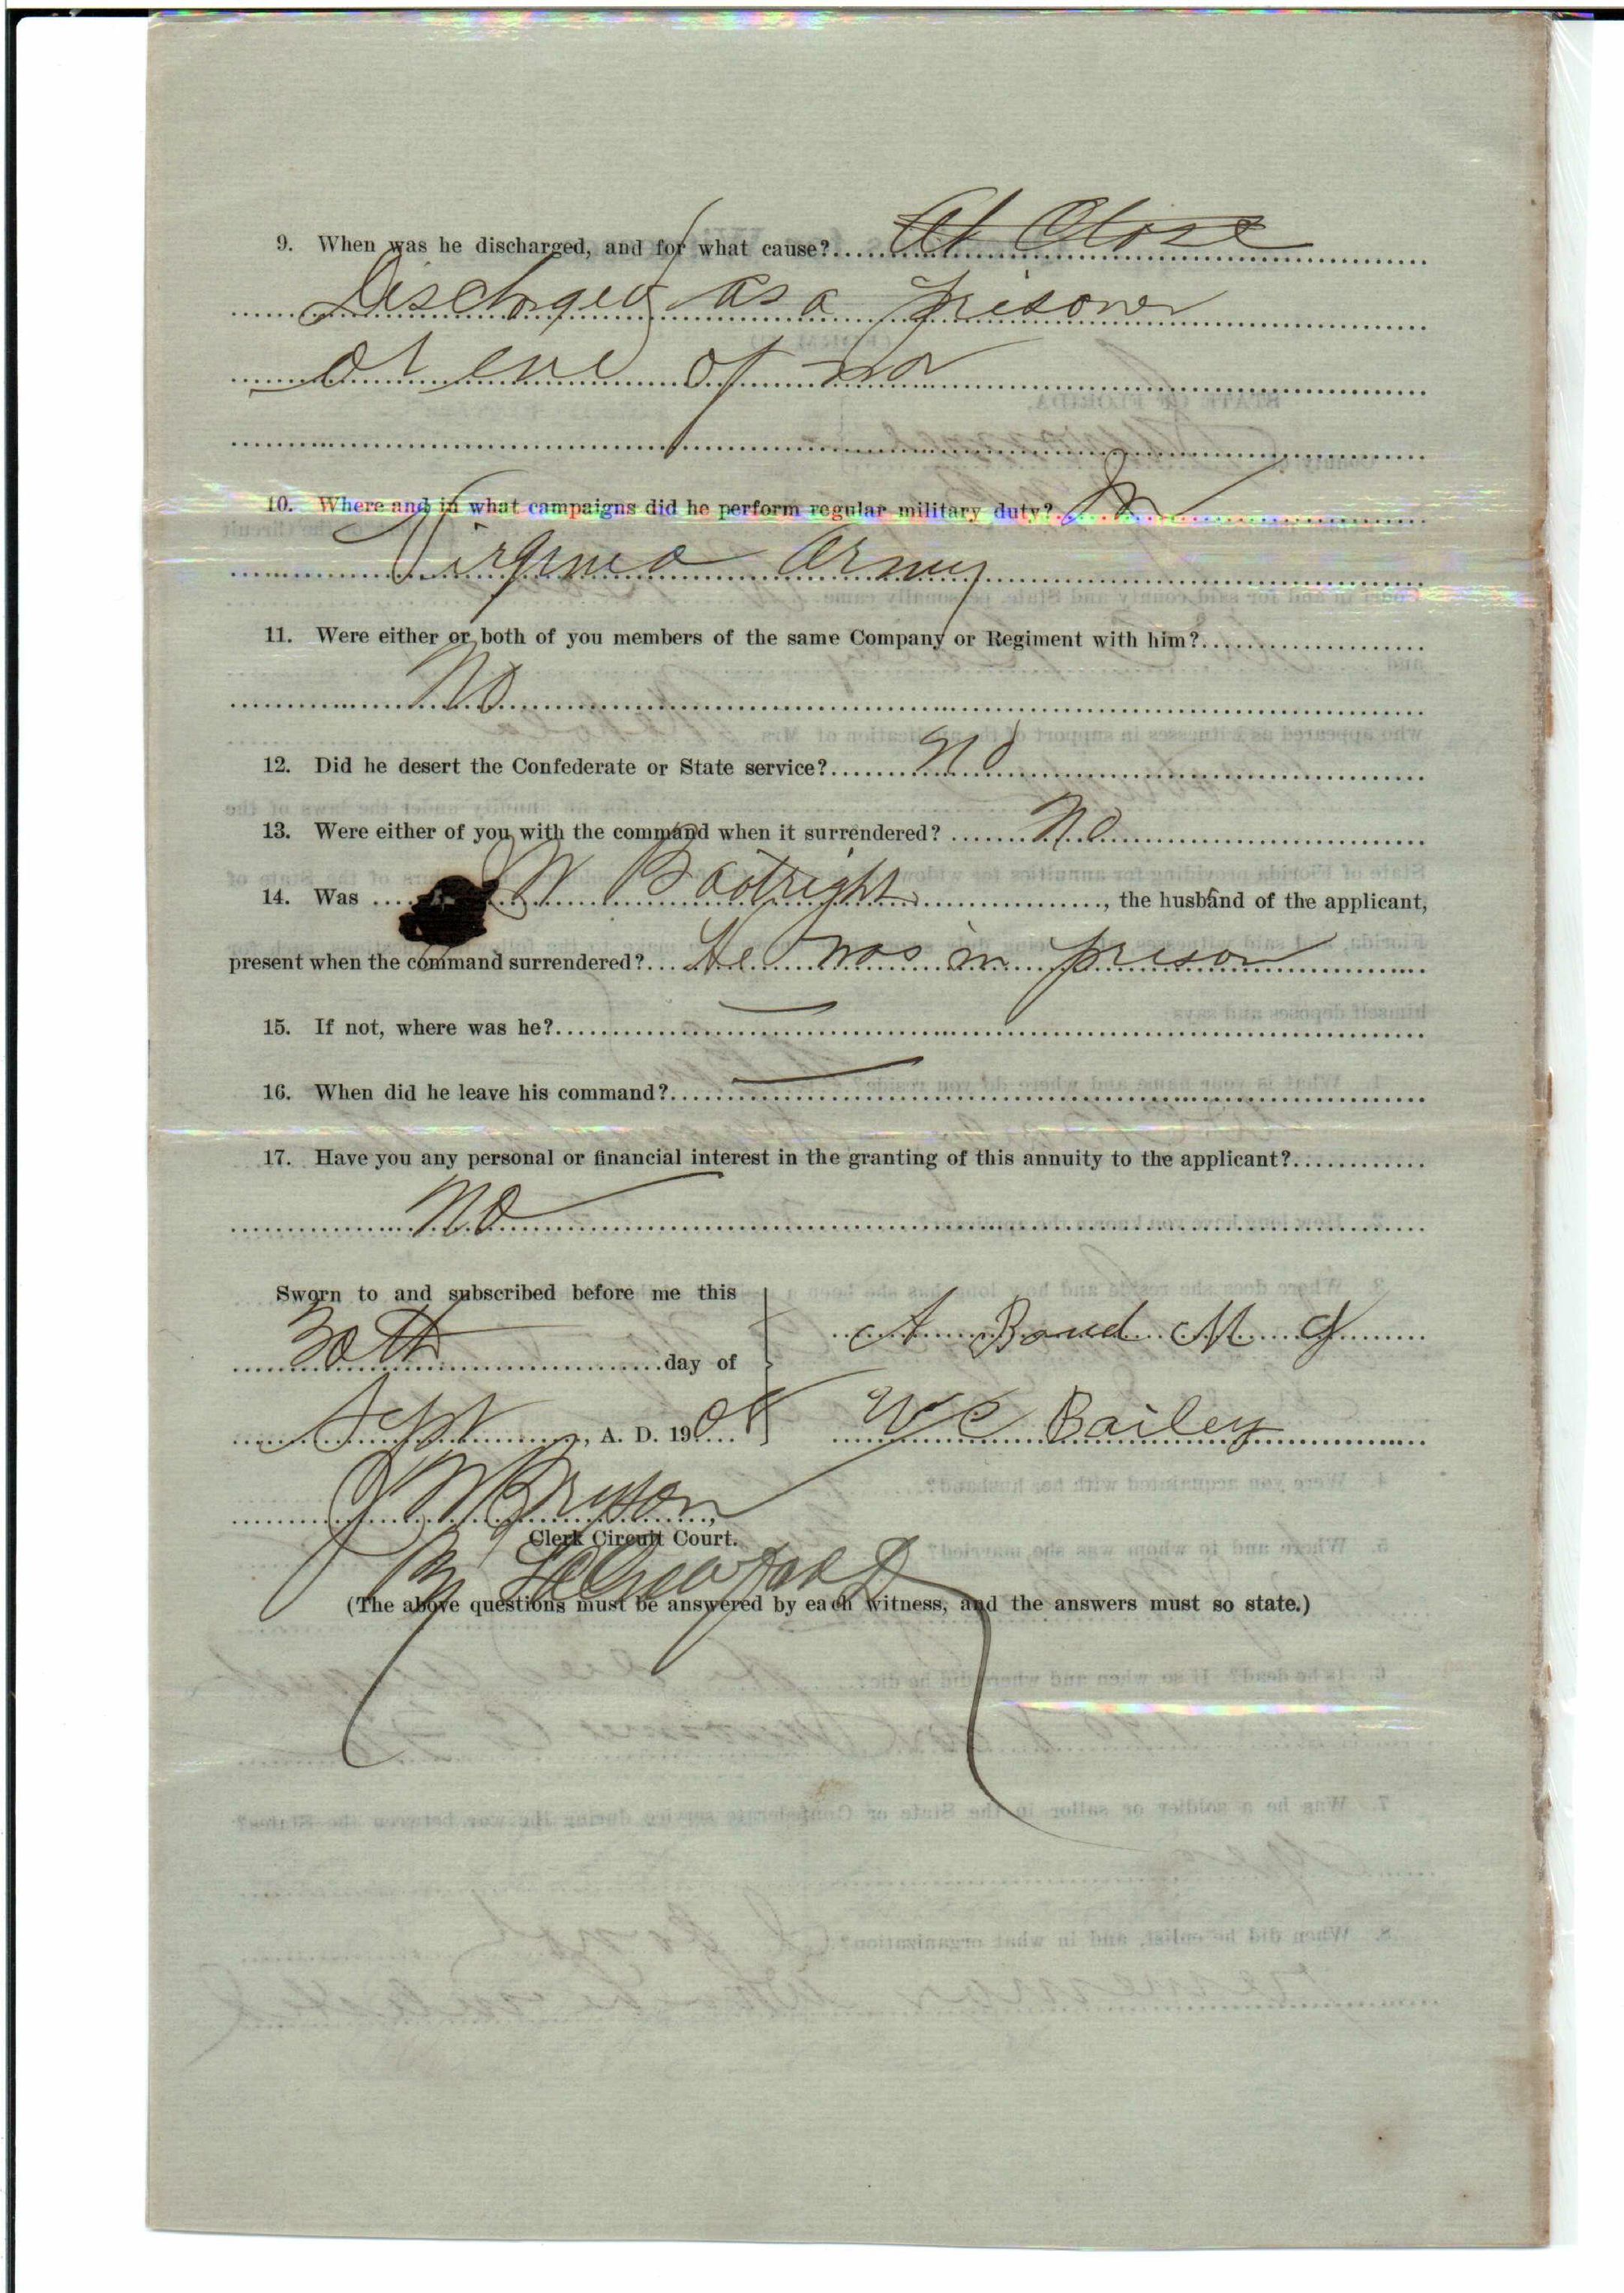 9. When was he discharged, and for what cause? At Close
Discharged as a prisoner
at end of war
10. Where and in what campaigns did he perform regular military duty? In
Virginia Army
11. Were either or both of you members of the same Company or Regiment with him?
No
12. Did he desert the Confederate or State service? No
13. Were either of you with the command when it surrendered? No
14. Was W Boatright, the husband of the applicant,
present when the command surrendered? He was in prison
15. If not, where was he? —
16. When did he leave his command? —
17. Have you any personal or financial interest in the granting of this annuity to the applicant?
No
Sworn to and subscribed before me this
30th day of
Sept, A. D. 1908
A M
W C Bailey
J W Bryson,
Clerk Circuit Court.
By
(The above questions must be answered by each witness, and the answers must so state.)